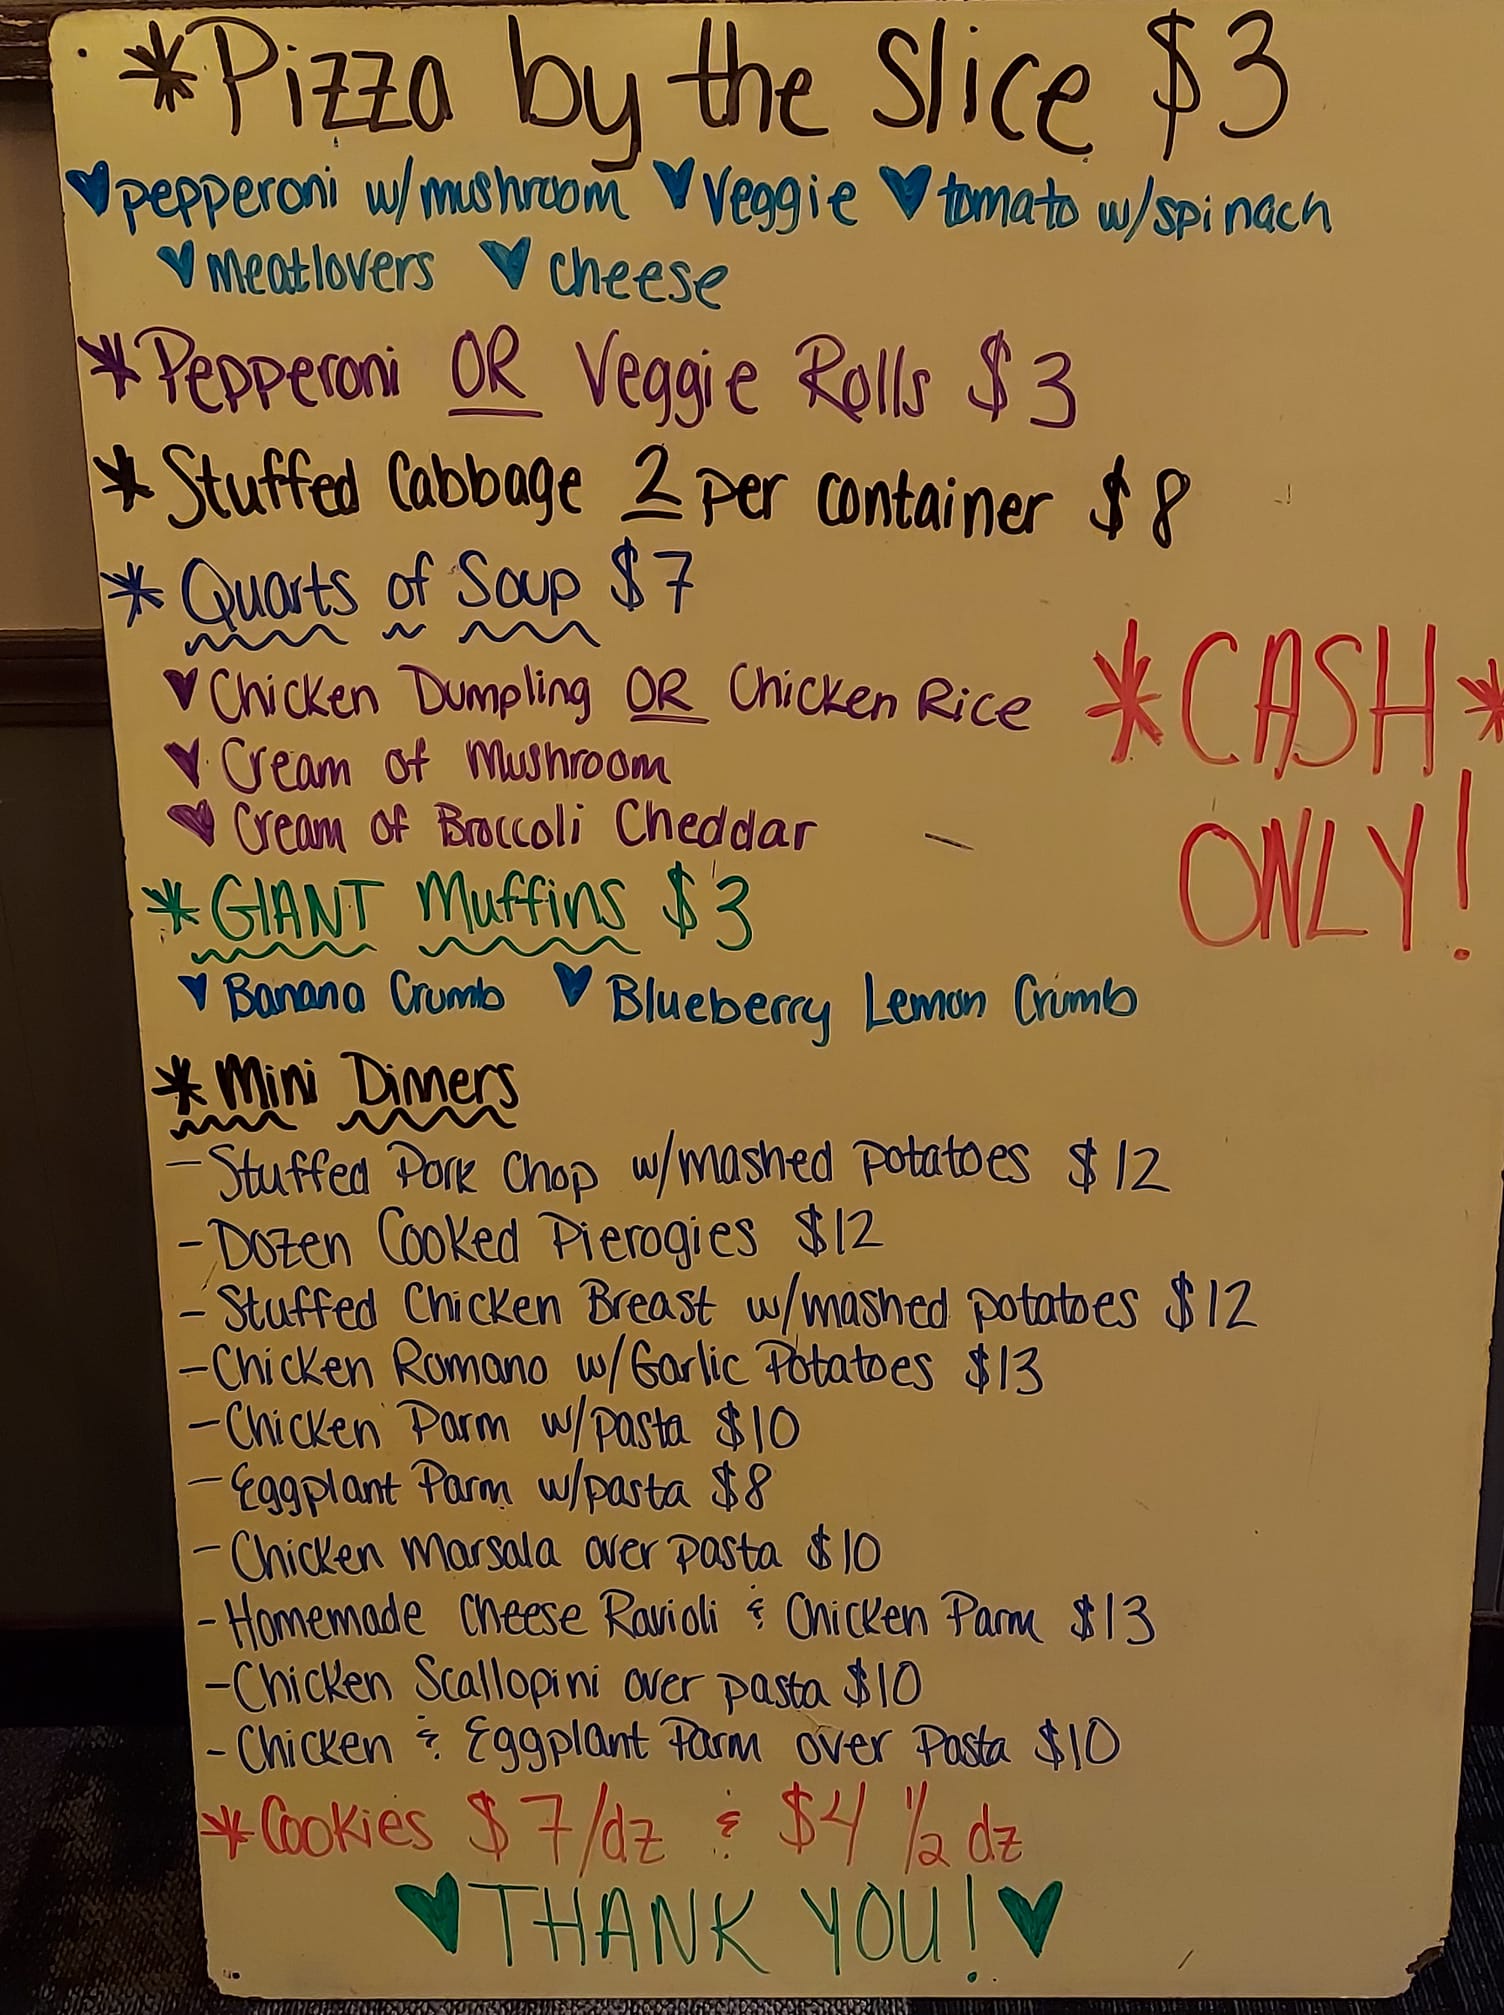 *Pizza by the Slice $3
♥pepperoni w/mushroom ♥Veggie ♥tomato w/spinach
♥meatlovers ♥cheese
*Pepperoni OR Veggie Rolls $3
*Stuffed Cabbage 2 per container $8
*Quarts of Soup $7
♥Chicken Dumpling OR Chicken Rice
♥Cream of Mushroom
♥Cream of Broccoli Cheddar
*CASH*
ONLY!
*GIANT Muffins $3
♥Banana Crumb ♥Blueberry Lemon Crumb
*Mini Dinners
-Stuffed Pork Chop w/mashed potatoes $12
-Dozen Cooked Pierogies $12
-Stuffed Chicken Breast w/mashed potatoes $12
-Chicken Romano w/Garlic Potatoes $13
-Chicken Parm w/pasta $10
-Eggplant Parm w/pasta $8
-Chicken Marsala over pasta $10
-Homemade Cheese Ravioli & Chicken Parm $13
-Chicken Scallopini over pasta $10
-Chicken & Eggplant Parm over Pasta $10
*Cookies $7/dz & $4 ½ dz
♥THANK YOU!♥